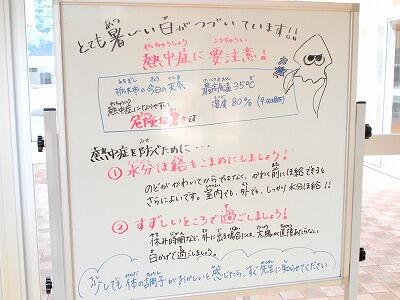 とても暑い日がつづいています!!
熱中症に要注意!
栃木市の今日の天気 最高気温35℃
湿度80%
熱中症になりやすい
危険な暑さです
熱中症を防ぐために・・・
① 水分ほ給をこまめにしましょう!
のどがかわいてからではなく、かわく前にほ給できると
さらによいです。室内でも、外でも、しっかり水分ほ給!!
② すずしいところで過ごしましょう!
休み時間など、外に出る場合には、太陽が直接あたらない
日かげで過ごしましょう。
少しでも体の調子がおかしいと感じたら、すぐ先生に知らせてください